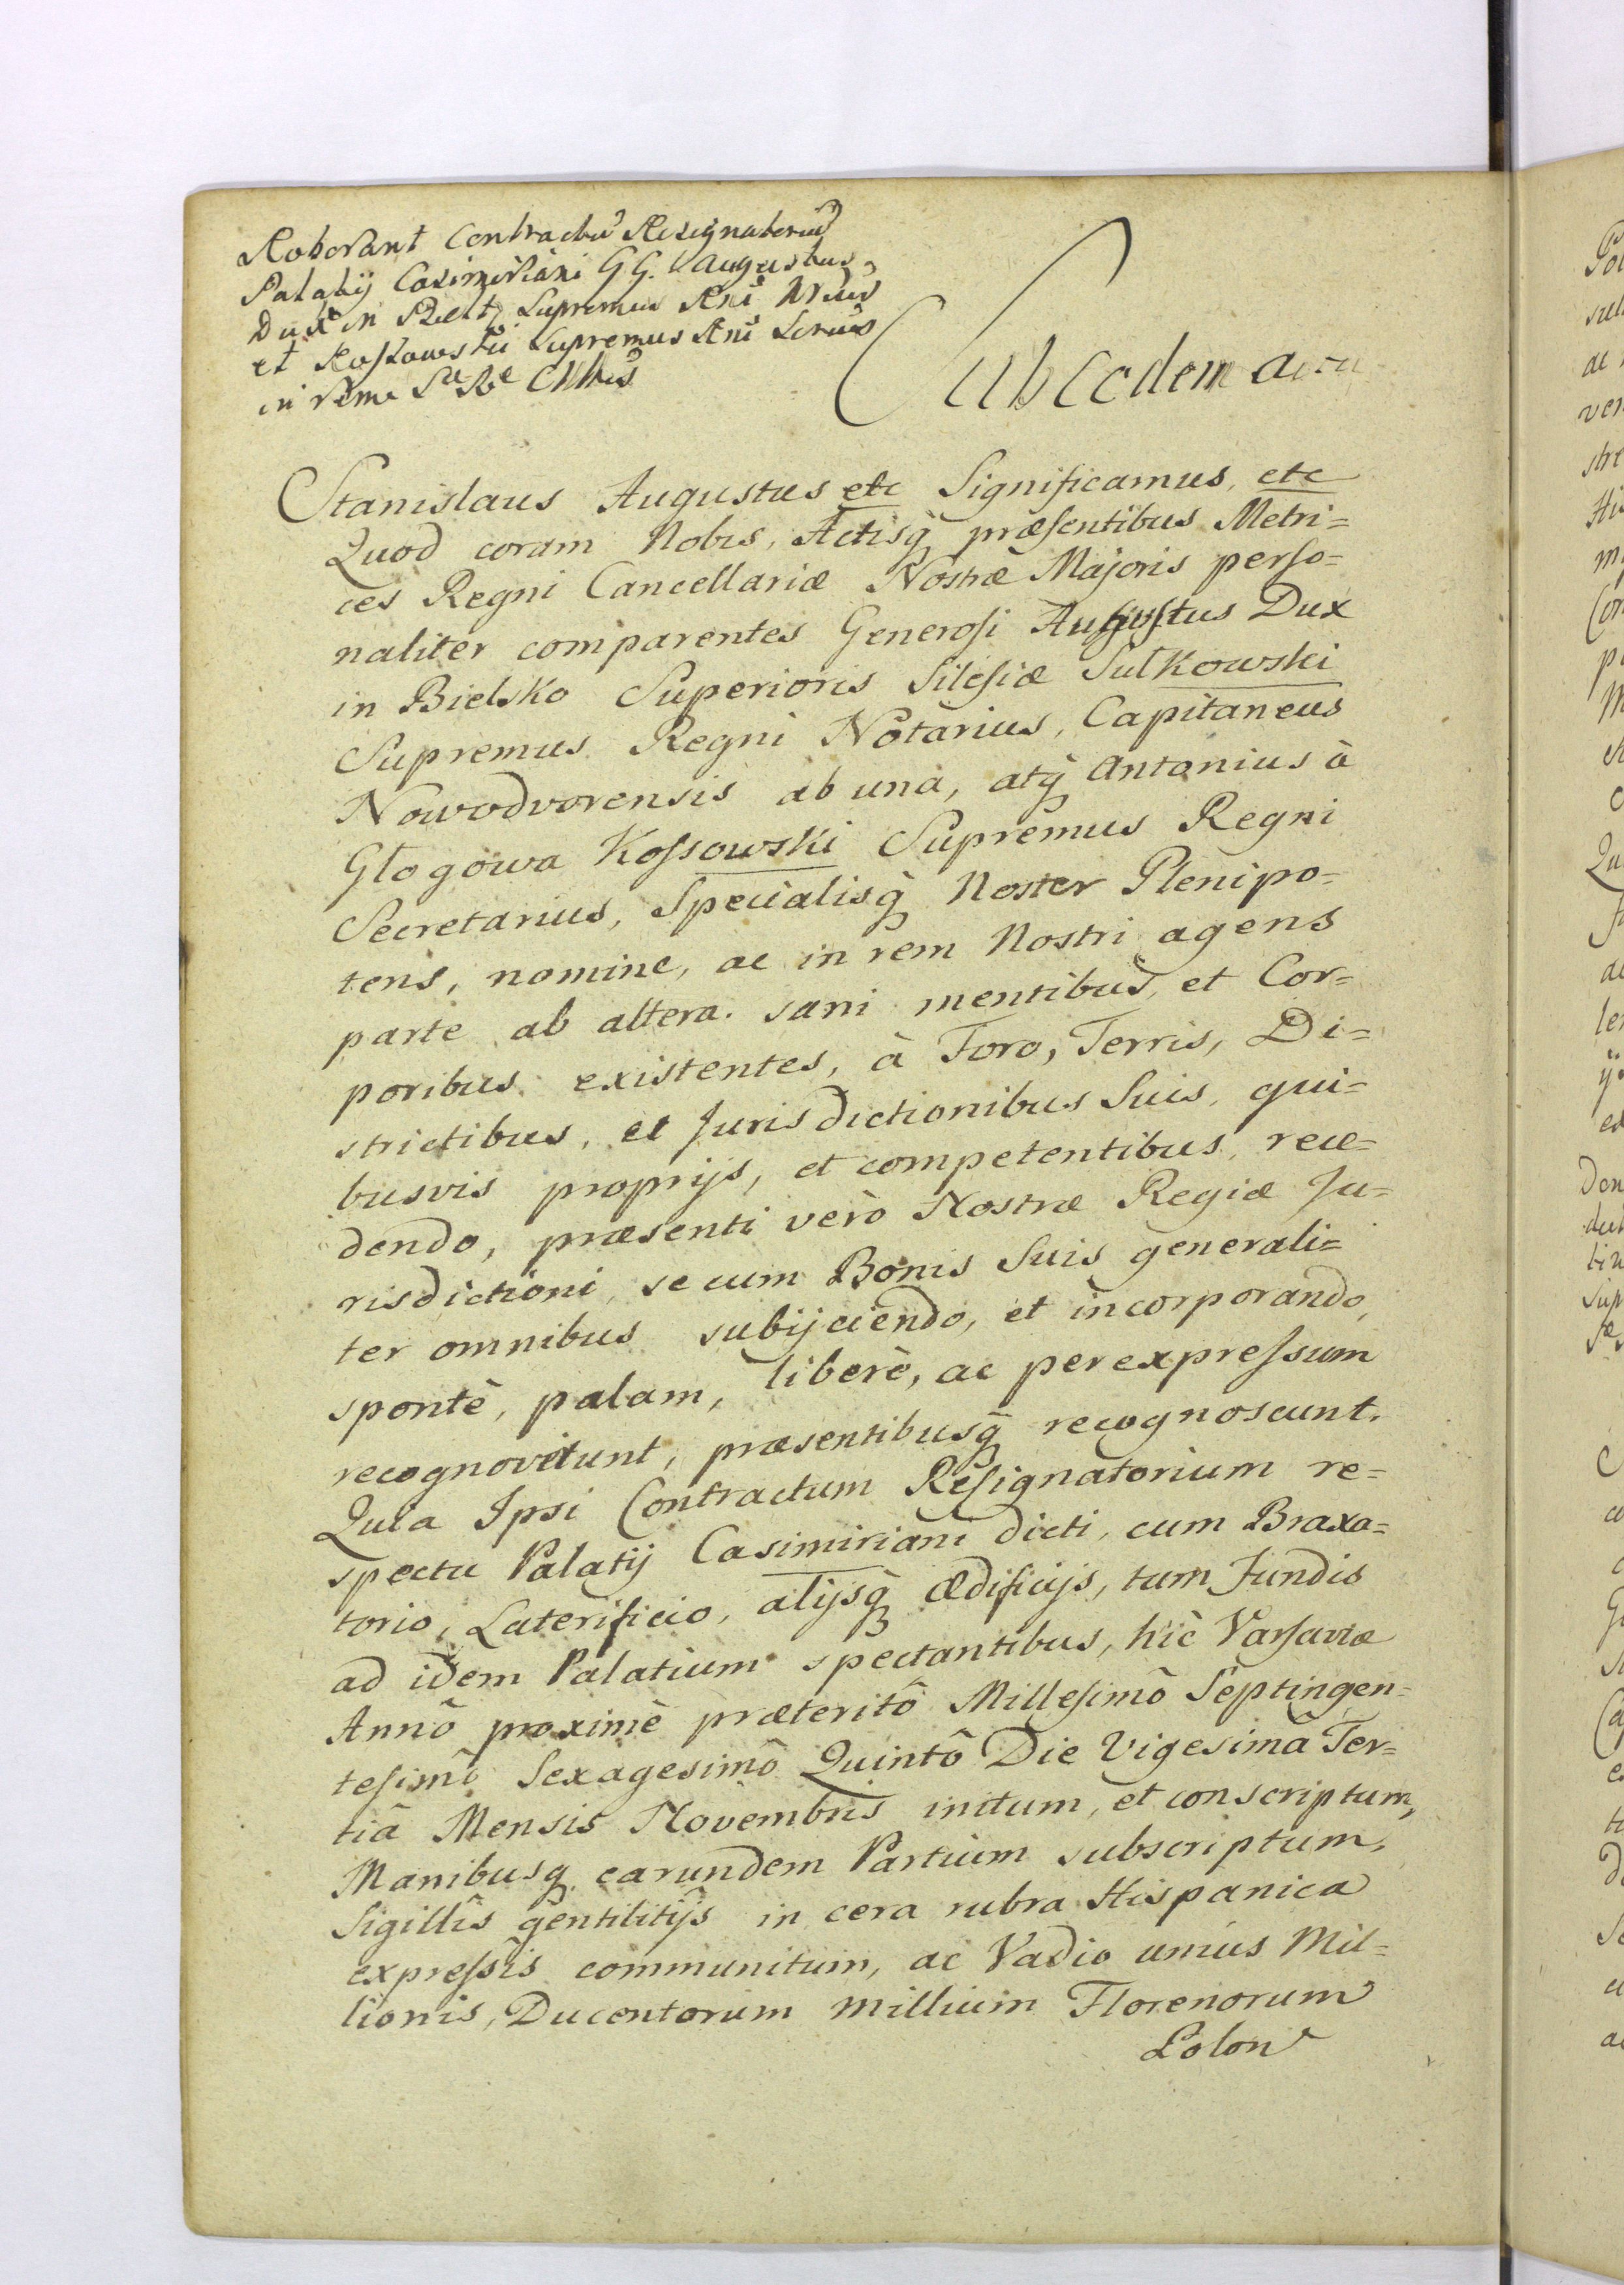 Roborant Contractū Resignatoriū
Palatij Casimiriani GG. Augustus
Dux in Bielt, Supremus Rni Nrius
et Kossowski Supremus Rni Scrius
in rem Sae Rae Mttis
Sub eodem actu
Stanislaus Augustus etc Significamus, etc
Quod coram Nobis, Actisq̀ præsentibus Metri=
ces Regni Cancellariæ Nostræ Majoris perso=
naliter comparentes Generosi Augustus Dux
in Bielsko Superioris Silesiæ Sułkowski
Supremus Regni Notarius, Capitaneus
Nowodvorensis ab una, atq̀ Antonius à
Głogowa Kossowski Supremus Regni
Secretarius, Specialisq̀ Noster Plenipo=
tens, nomine, ac in rem Nostri agens
parte ab altera. sani mentibus, et Cor=
poribus existentes, à Foro, Terris, Di=
strictibus, et Jurisdictionibus Suis, qui=
busvis proprijs, et competentibus, rece=
dendo, præsenti verò Nostræ Regiæ Ju=
risdictioni, se cum Bonis Suis generali=
ter omnibus subijciendo, et incorporando,
spontè, palam, liberè, ac per expressum
recognoverunt, præsentibusq̀ recognoscunt.
Quia Ipsi Contractum Resignatorium re=
spectu Palatij Casimiriani dicti, cum Braxa=
torio, Laterificio, alijsq̀ ædificijs, tum Fundis
ad idem Palatium spectantibus, hìc Varsaviæ
Annô proximè præteritô Millesimô Septingen=
tesimô Sexagesimô Quintô Die Vigesimâ Ter=
tiâ Mensis Novembris initum, et conscriptum,
Manibusq̀ earundem Partium subscriptum,
Sigillis gentilitijs in cera rubra Hispanica
expressis communitum, ac Vadio unius Mil=
lionis, Ducentorum millium Florenorum
Polon